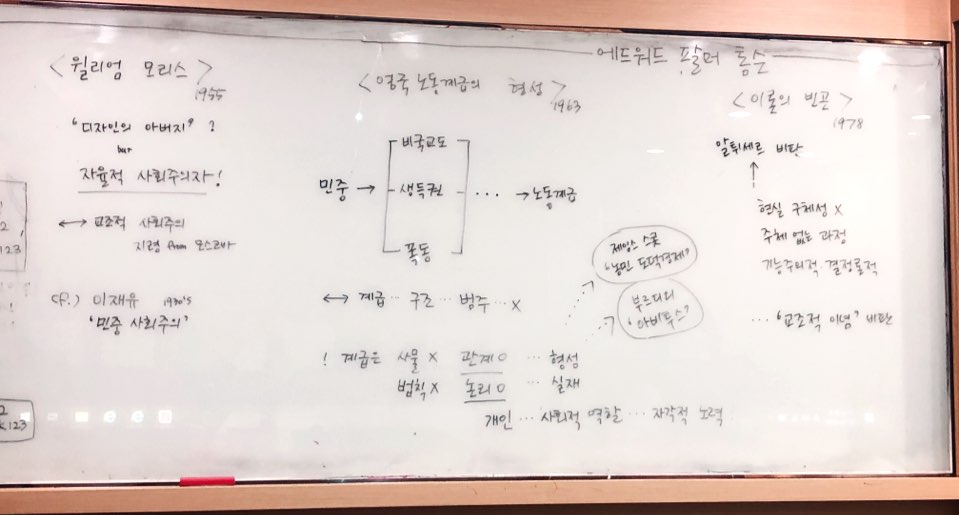 에드워드 팔머 톰슨
<윌리엄 모리스>
1955
"디자인의 아버지" ?
but
자율적 사회주의자!
↔ 교조적 사회주의
지령 from 모스코바
cf.) 이재유 1930's
'민중 사회주의'
<영국 노동계급의 형성>
1963
비국교도
민중 → 생득권 ... → 노동계급
폭동
↔ 계급... 구조... 범주... x
! 계급은 사물 x 관계 o ... 형성
법칙 x 논리 o ... 실재
개인 ... 사회적 역할 ... 자각적 노력
제임스 스콧
'농민 도덕경제'
부르디외
'아비투스'
<이론의 빈곤>
1978
알튀세르 비판
현실 구체성 x
주체 없는 과정
기능주의적 결정론적
... "교조적 이념" 비판
2
123
2
k.123